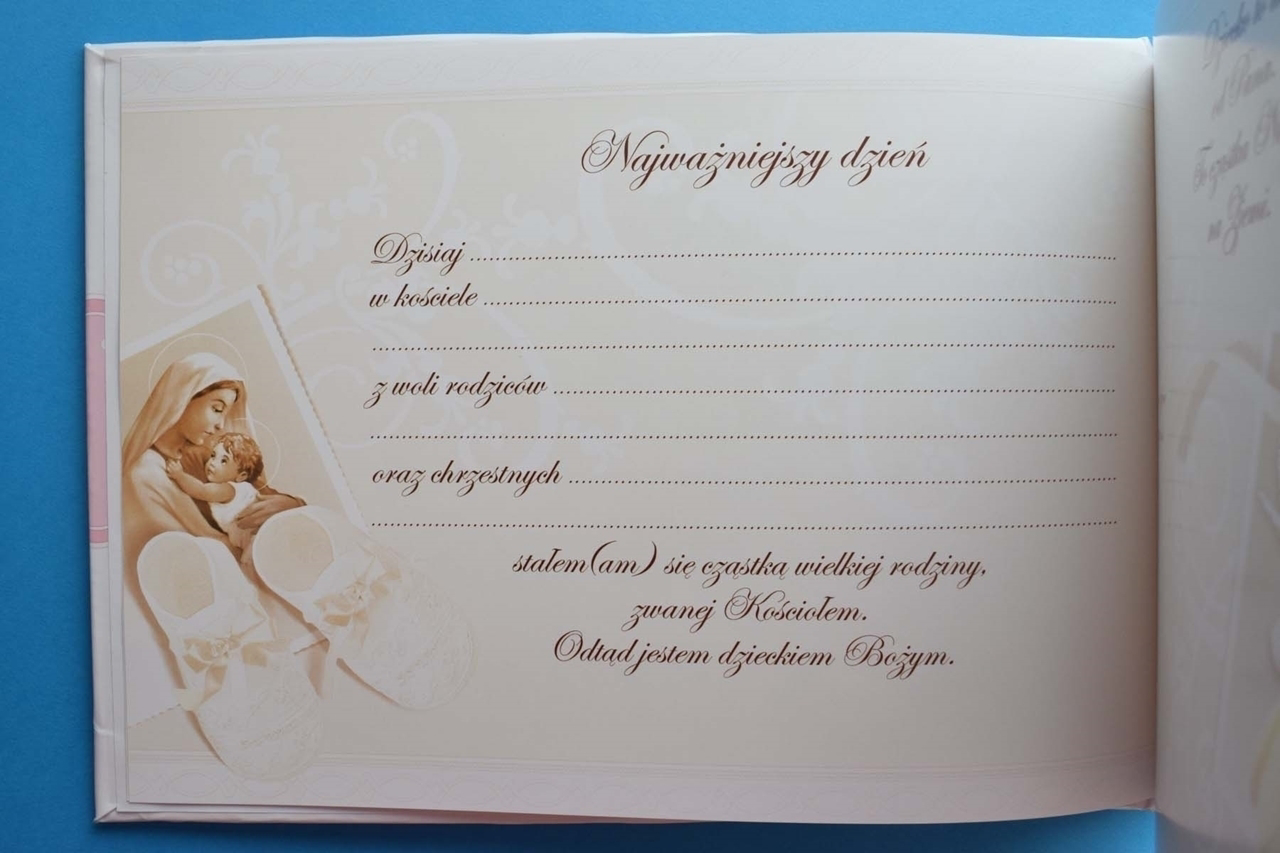 Najważniejszy dzień
Dzisiaj ........................................
w kościele ........................................
........................................
z woli rodziców ........................................
........................................
oraz chrzestnych ........................................
........................................
stałem(am) się cząstką wielkiej rodziny,
zwanej Kościołem.
Odtąd jestem dzieckiem Bożym.